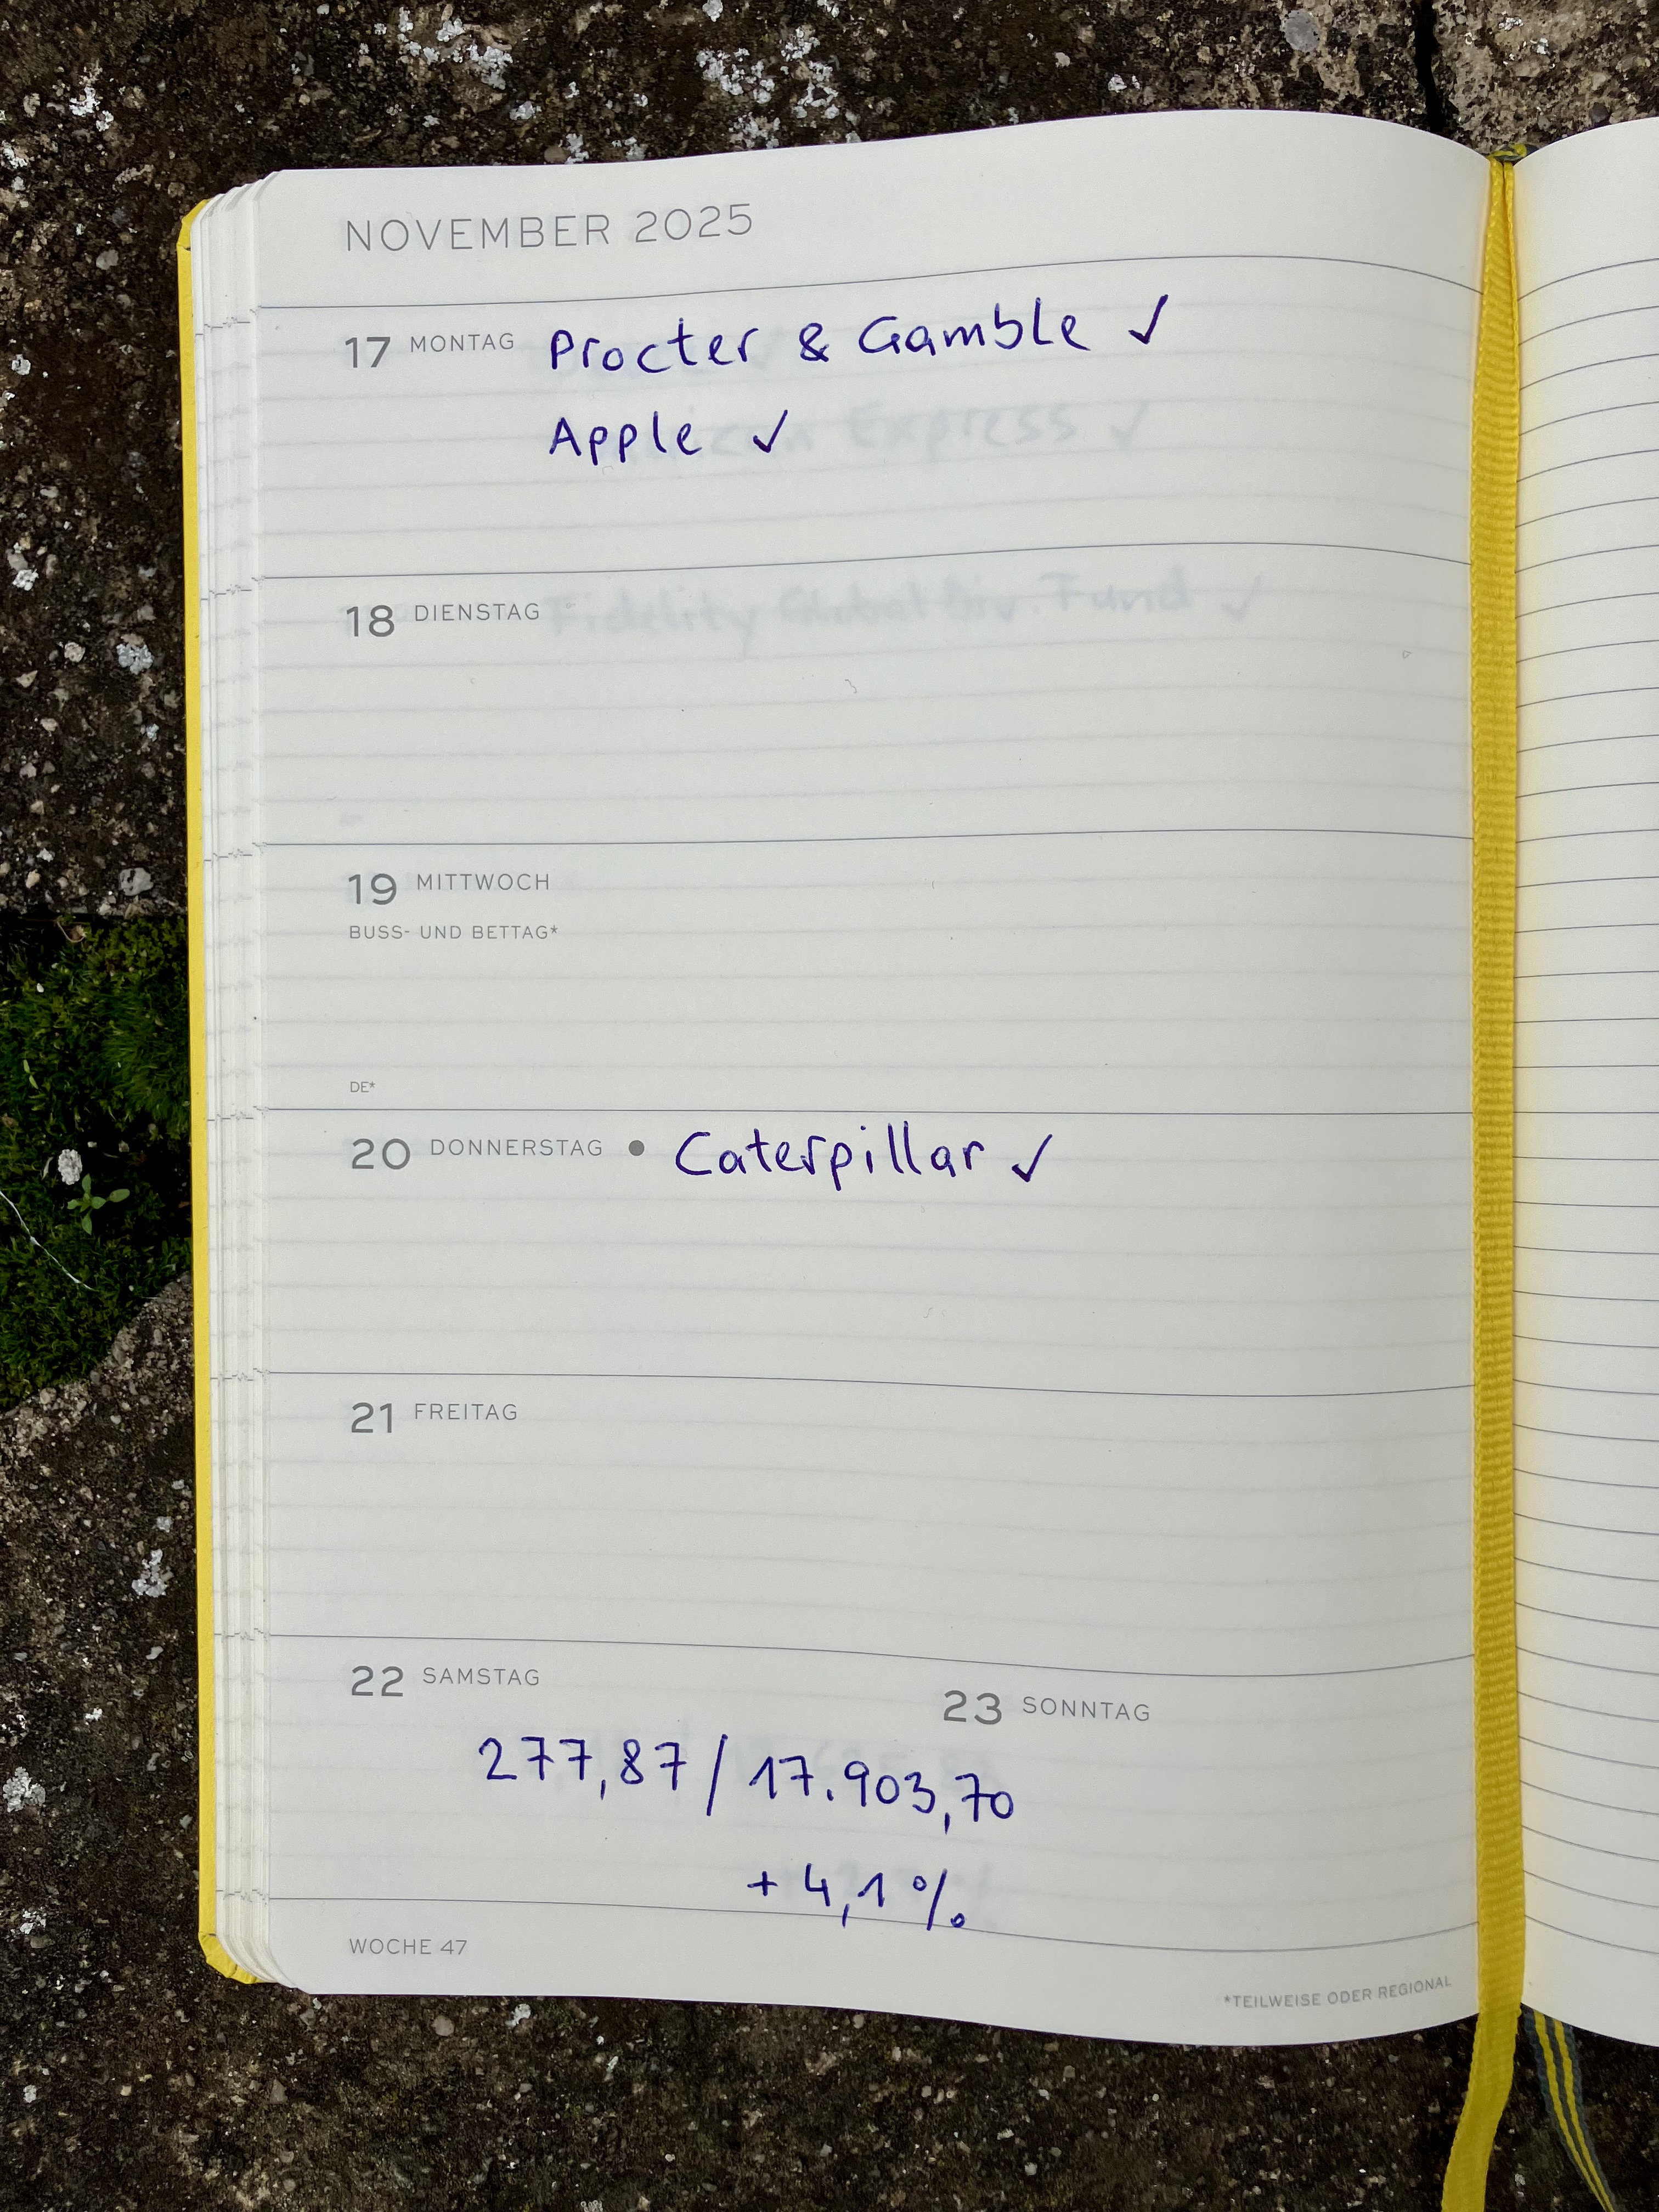 NOVEMBER 2025
17 MONTAG Procter & Gamble ✓
Apple ✓
Express ✓
18 DIENSTAG
Fidelity Global Div. Fund ✓
19 MITTWOCH
BUSS- UND BETTAG*
DE*
20 DONNERSTAG ● Caterpillar ✓
21 FREITAG
22 SAMSTAG
23 SONNTAG
277,87 / 17.903,70
+ 4,1 %
WOCHE 47
*TEILWEISE ODER REGIONAL